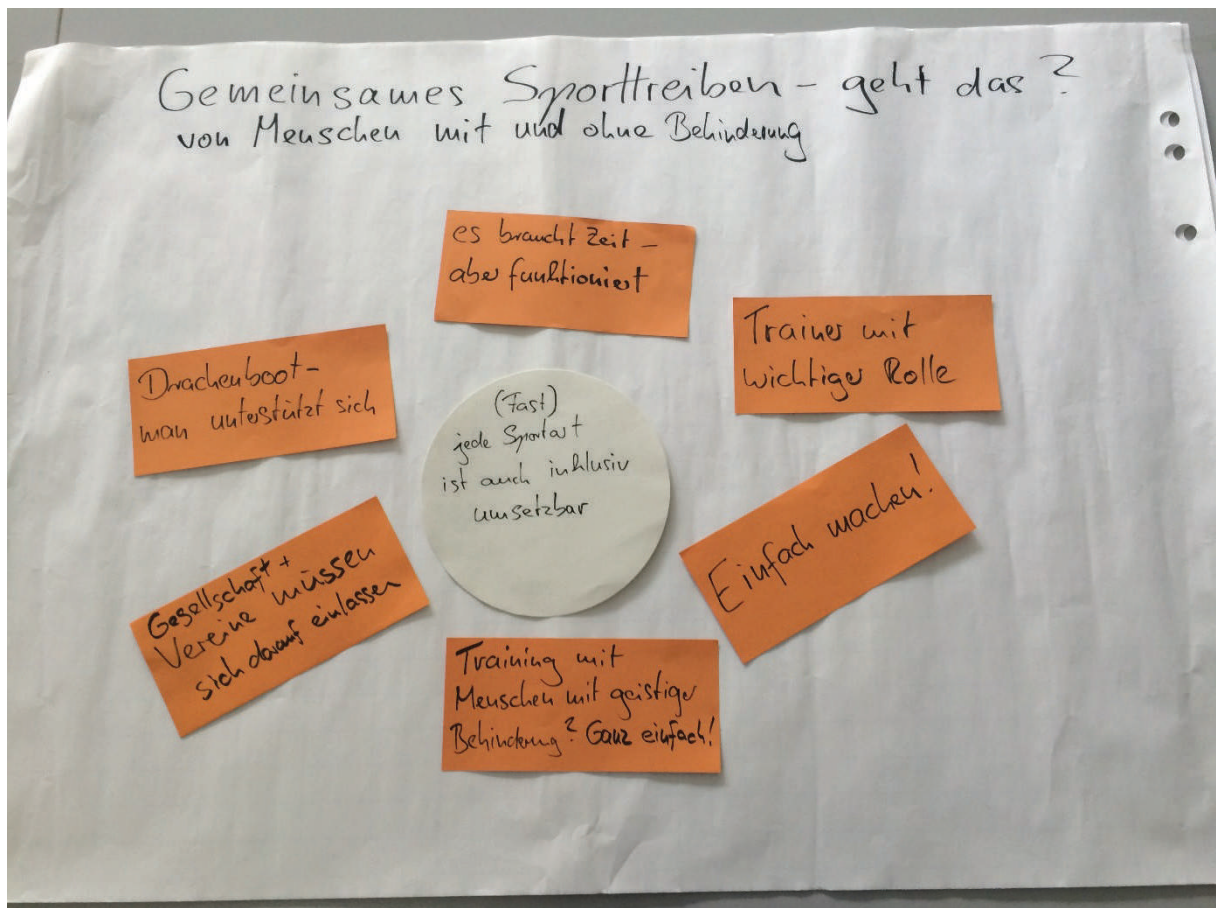 Gemeinsames Sporttreiben – geht das?
von Menschen mit und ohne Behinderung
es braucht Zeit –
aber funktioniert
Trainer mit
wichtiger Rolle
Drachenboot –
man unterstützt sich
(Fast)
jede Sportart
ist auch inklusiv
umsetzbar
Einfach machen!
Gesellschaft +
Vereine müssen
sich darauf einlassen
Training mit
Menschen mit geistiger
Behinderung? Ganz einfach!